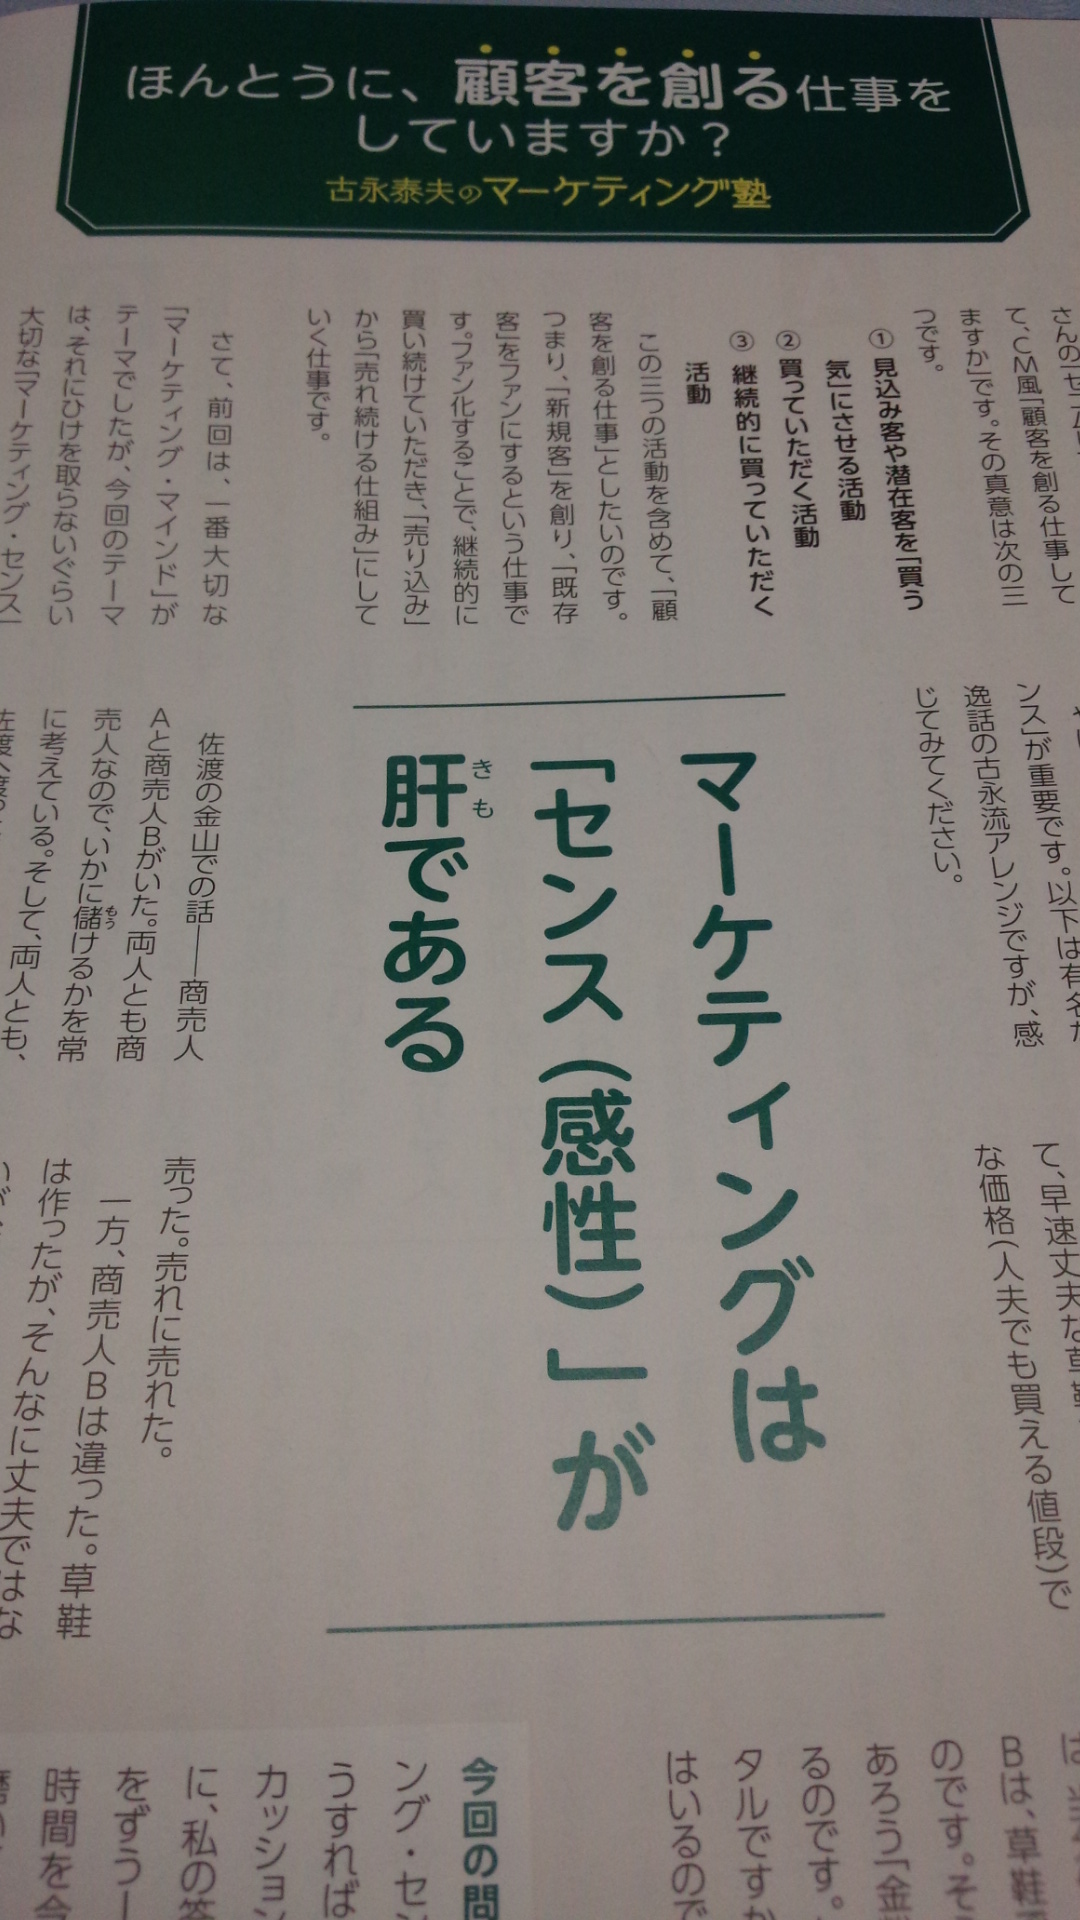 ほんとうに、顧客を創る仕事を
していますか？
古永泰夫のマーケティング塾
て、CM風「顧客を創る仕事して
ますか」です。その真意は次の三
つです。
① 見込み客や潜在客を「買う
気」にさせる活動
② 買っていただく活動
③ 継続的に買っていただく
活動
この三つの活動を含めて、「顧
客を創る仕事」としたいのです。
つまり、「新規客」を創り、「既存
客」をファンにするという仕事で
す。ファン化することで、継続的に
買い続けていただき、「売り込み」
から「売れ続ける仕組み」にして
いく仕事です。
さて、前回は、一番大切な
「マーケティング・マインド」が
テーマでしたが、今回のテーマ
は、それにひけを取らないぐらい
大切な「マーケティング・センス」
マーケティングは
「センス（感性）」が
肝である
きも
ンス」が重要です。以下は有名な
逸話の古永流アレンジですが、感
じてみてください。
佐渡の金山での話――商売人
Aと商売人Bがいた。両人とも商
売人なので、いかに儲けるかを常
もう
に考えている。そして、両人とも、
て、早速丈夫な草鞋
な価格（人夫でも買える値段）で
売った。売れに売れた。
一方、商売人Bは違った。草鞋
は作ったが、そんなに丈夫ではな
Bは、草鞋
のです。そ
あろう「金
るのです。
タルですか
はいるので
今回の問
ング・セン
うすれば
カッション
に、私の答
をずうー
時間を今